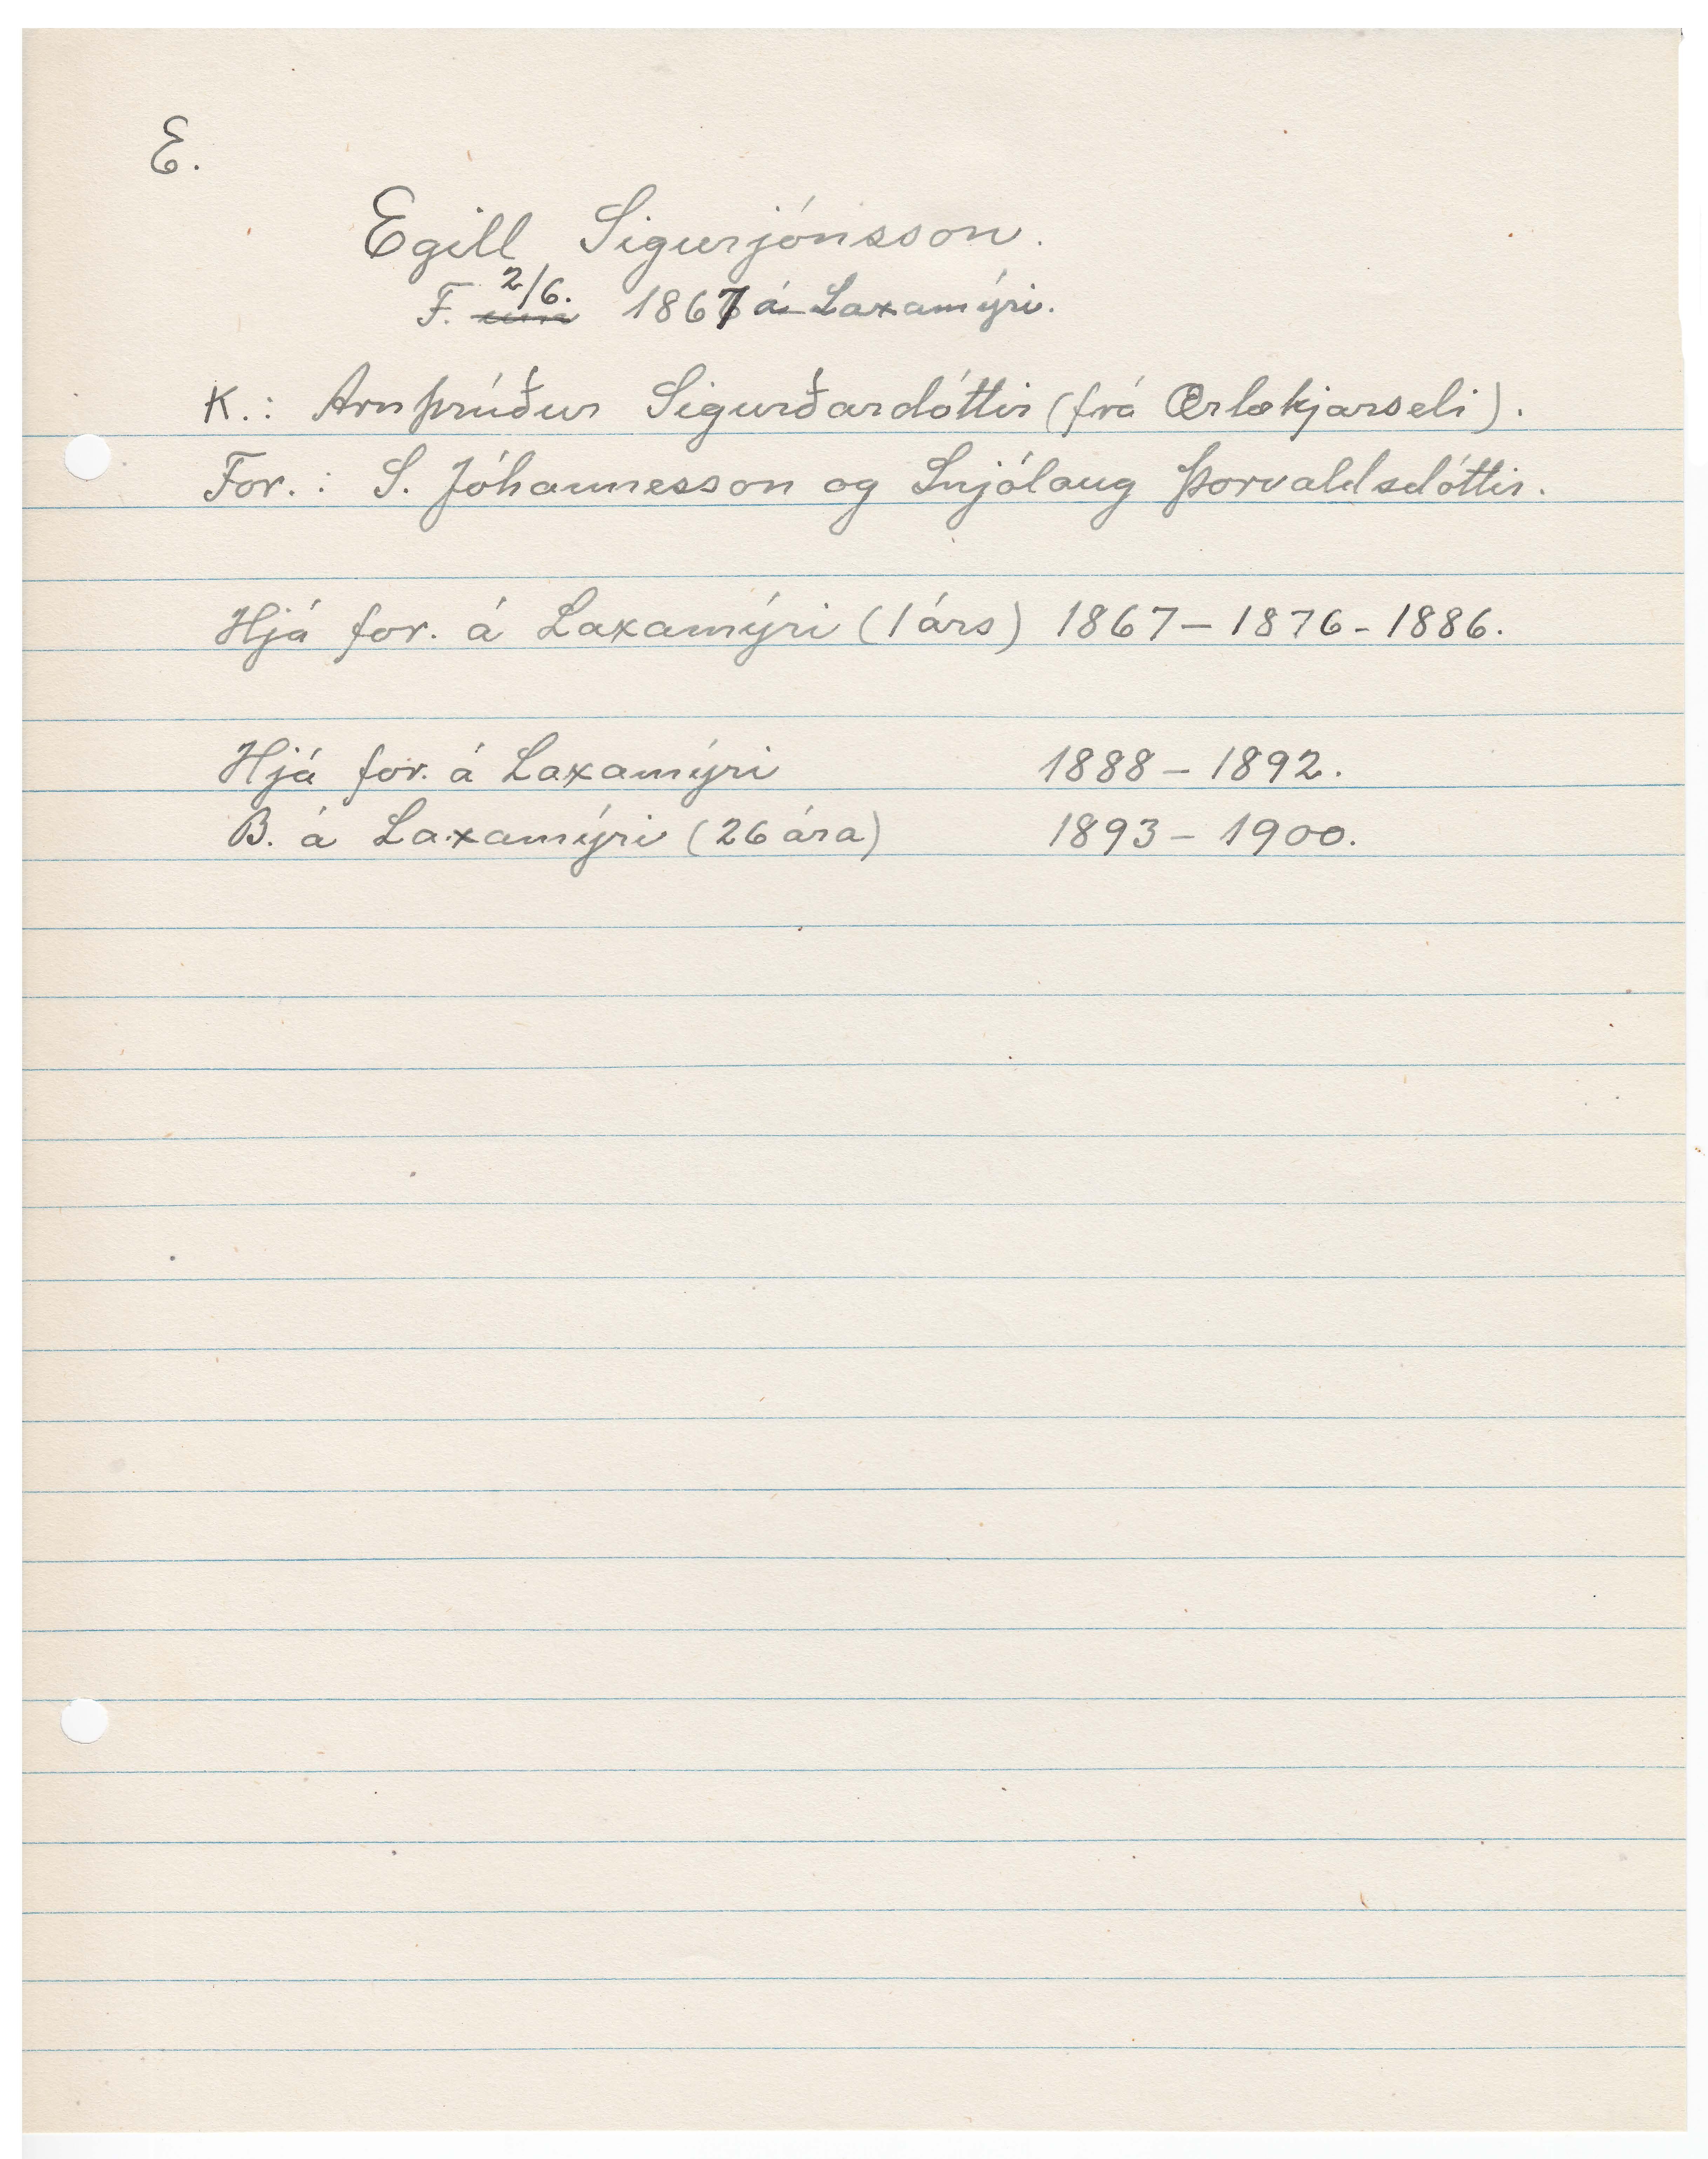 E.
Egill Sigurjónsson.
F. 2/6. 1867 á Laxamýri.
K.: Arnþrúður Sigurðardóttir (frá Ærlækjarseli).
For.: S. Jóhannesson og Snjólaug Þorvaldsdóttir.
Hjá for. á Laxamýri (1 árs) 1867 – 1876 - 1886.
Hjá for. á Laxamýri 1888 – 1892.
B. á Laxamýri (26 ára) 1893 – 1900.